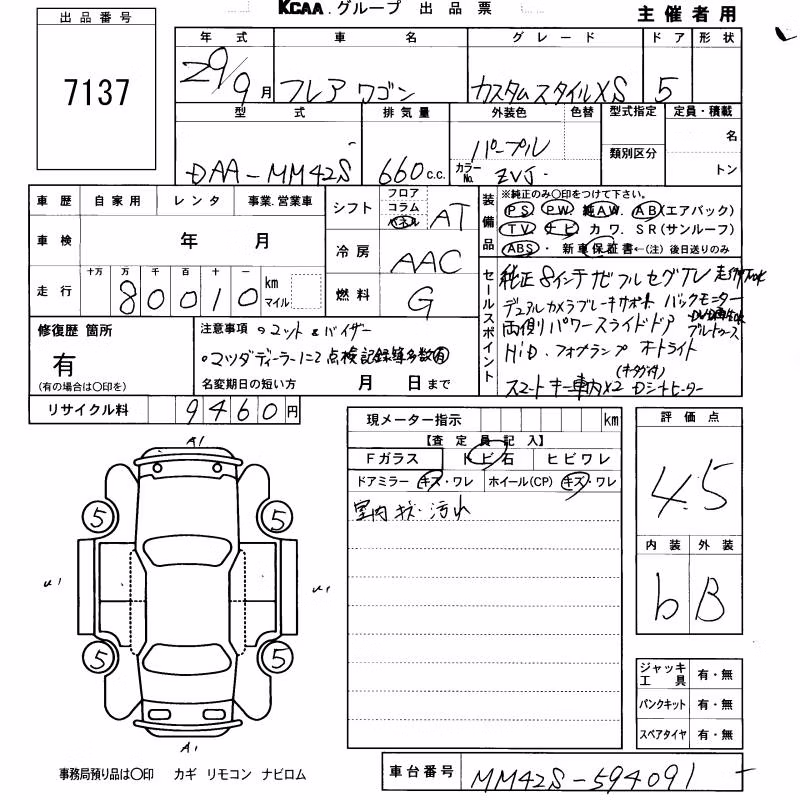 KCAA.グループ 出品票
主催者用
出品番号
7137
年式 車名 グレード ドア 形状
29/9月 フレアワゴン カスタムスタイルXS 5
型式 排気量 外装色 色替 型式指定 定員・積載
DAA-MM42S 660c.c. パープル 類別区分 名
カラーNo. ZVJ トン
車歴 自家用 レンタ 事業.営業車
車検 年 月
走行 十万 万 千 百 十 一
80010 km マイル
シフト フロア コラム パネル AT
冷房 AAC
燃料 G
装備品
※純正のみ〇印をつけて下さい。
PS. PW. 純AW. AB(エアバック)
TV. ナビ カワ. SR(サンルーフ)
ABS・新車保証書←(注)後日送りのみ
セールスポイント
純正8インチナビフルセグTV 走行中OK
デュアルカメラブレーキサポート バックモニター
両側パワースライドドア DVD再生OK ブルートゥース
HiD. フォグランプ オートライト
スマートキー車内×2 Dシートヒーター
修復歴 箇所
有
(有の場合は〇印を)
注意事項 ・マット&バイザー
・マツダディーラーにて点検記録簿多数有
名変期日の短い方 月 日まで
リサイクル料 9460円
現メーター指示 km
【査定員記入】
Fガラス トビ石 ヒビワレ
ドアミラー キズ・ワレ ホイール(CP) キズ・ワレ
室内キズ・汚れ
評価点
4.5
内装 外装
b B
A1
5 5
U1 U1
5 5
A1
ジャッキ工具 有・無
パンクキット 有・無
スペアタイヤ 有・無
事務局預り品は〇印 カギ リモコン ナビロム
車台番号 MM42S-594091